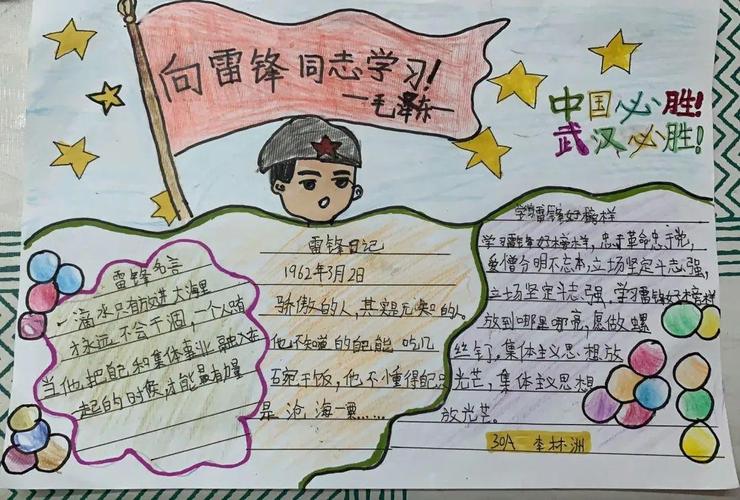 向雷锋同志学习!
一毛泽东
中国必胜!
武汉必胜!
雷锋名言
一滴水只有放进大海里
才永远不会干涸,一个人只有
当他把自己和集体事业融合在
一起的时候才能最有力量
雷锋日记
1962年3月2日
骄傲的人,其实是无知的人。
他不知道的自己能吃几
碗干饭,他不懂得自己
是沧海一粟......
学习雷锋好榜样
学习雷锋好榜样,忠于革命忠于党,
爱憎分明不忘本,立场坚定斗志强,
立场坚定斗志强,学习雷锋好榜样
放到哪里哪亮,愿做螺
丝钉,集体主义思想放
光芒,集体主义思想
放光芒。
李林洲